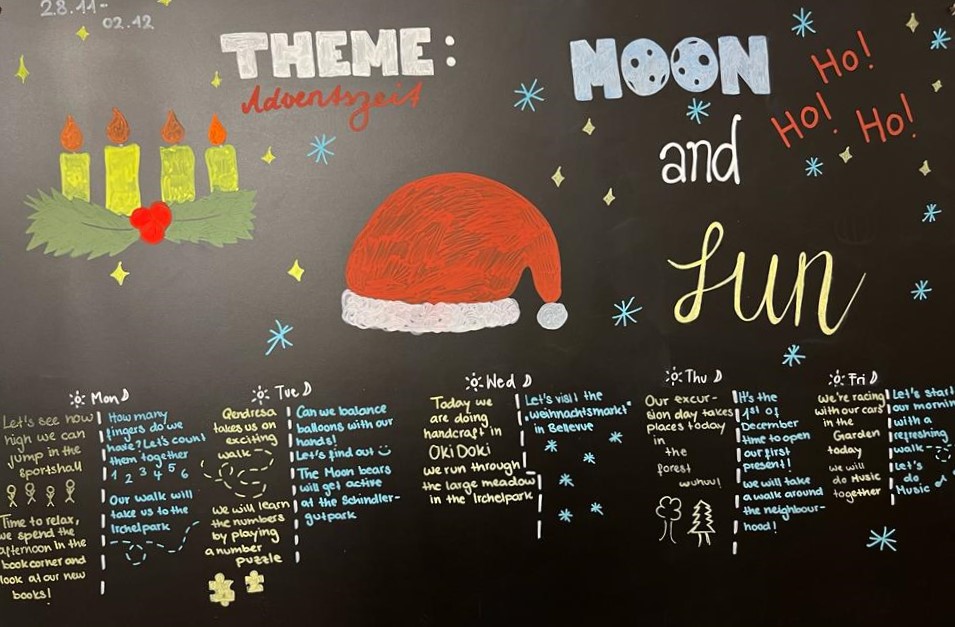 28.11-
02.12
THEME:
Adventszeit
MOON
and
Sun
Ho!
Ho!
Ho!
Mon
Let's see how
high we can
jump in the
sportshall
Time to relax,
we spend the
afternoon in the
bookcorner and
look at our new
books!
How many
fingers do we
have? Let's count
them together
1 2 3 4 5 6
Our walk will
take us to the
Irchelpark
Tue
Qendresa
takes us on
exciting
walk
we will learn
the numbers
by playing
a number
puzzle
Can we balance
balloons with our
hands!
Let's find out
The Moon bears
will get active
at the Schindler-
gutpark
Wed
Today we
are doing
handcraft in
OKi DoKi
we run through
the large meadow
in the Irchelpark
Let's visit the
"Weihnachtsmarkt"
in Bellevue
Thu
Our excur-
sion day takes
places today
in
the
forest
wuhuu!
It's the
1st of
December
time to open
our first
present!
we will take
a walk around
the neighbour-
hood!
Fri
we're racing
with our cars
in the
Garden
today
we will
do Music
together
Let's start
our mornin
with a
refreshing
walk
Let's
do
Music